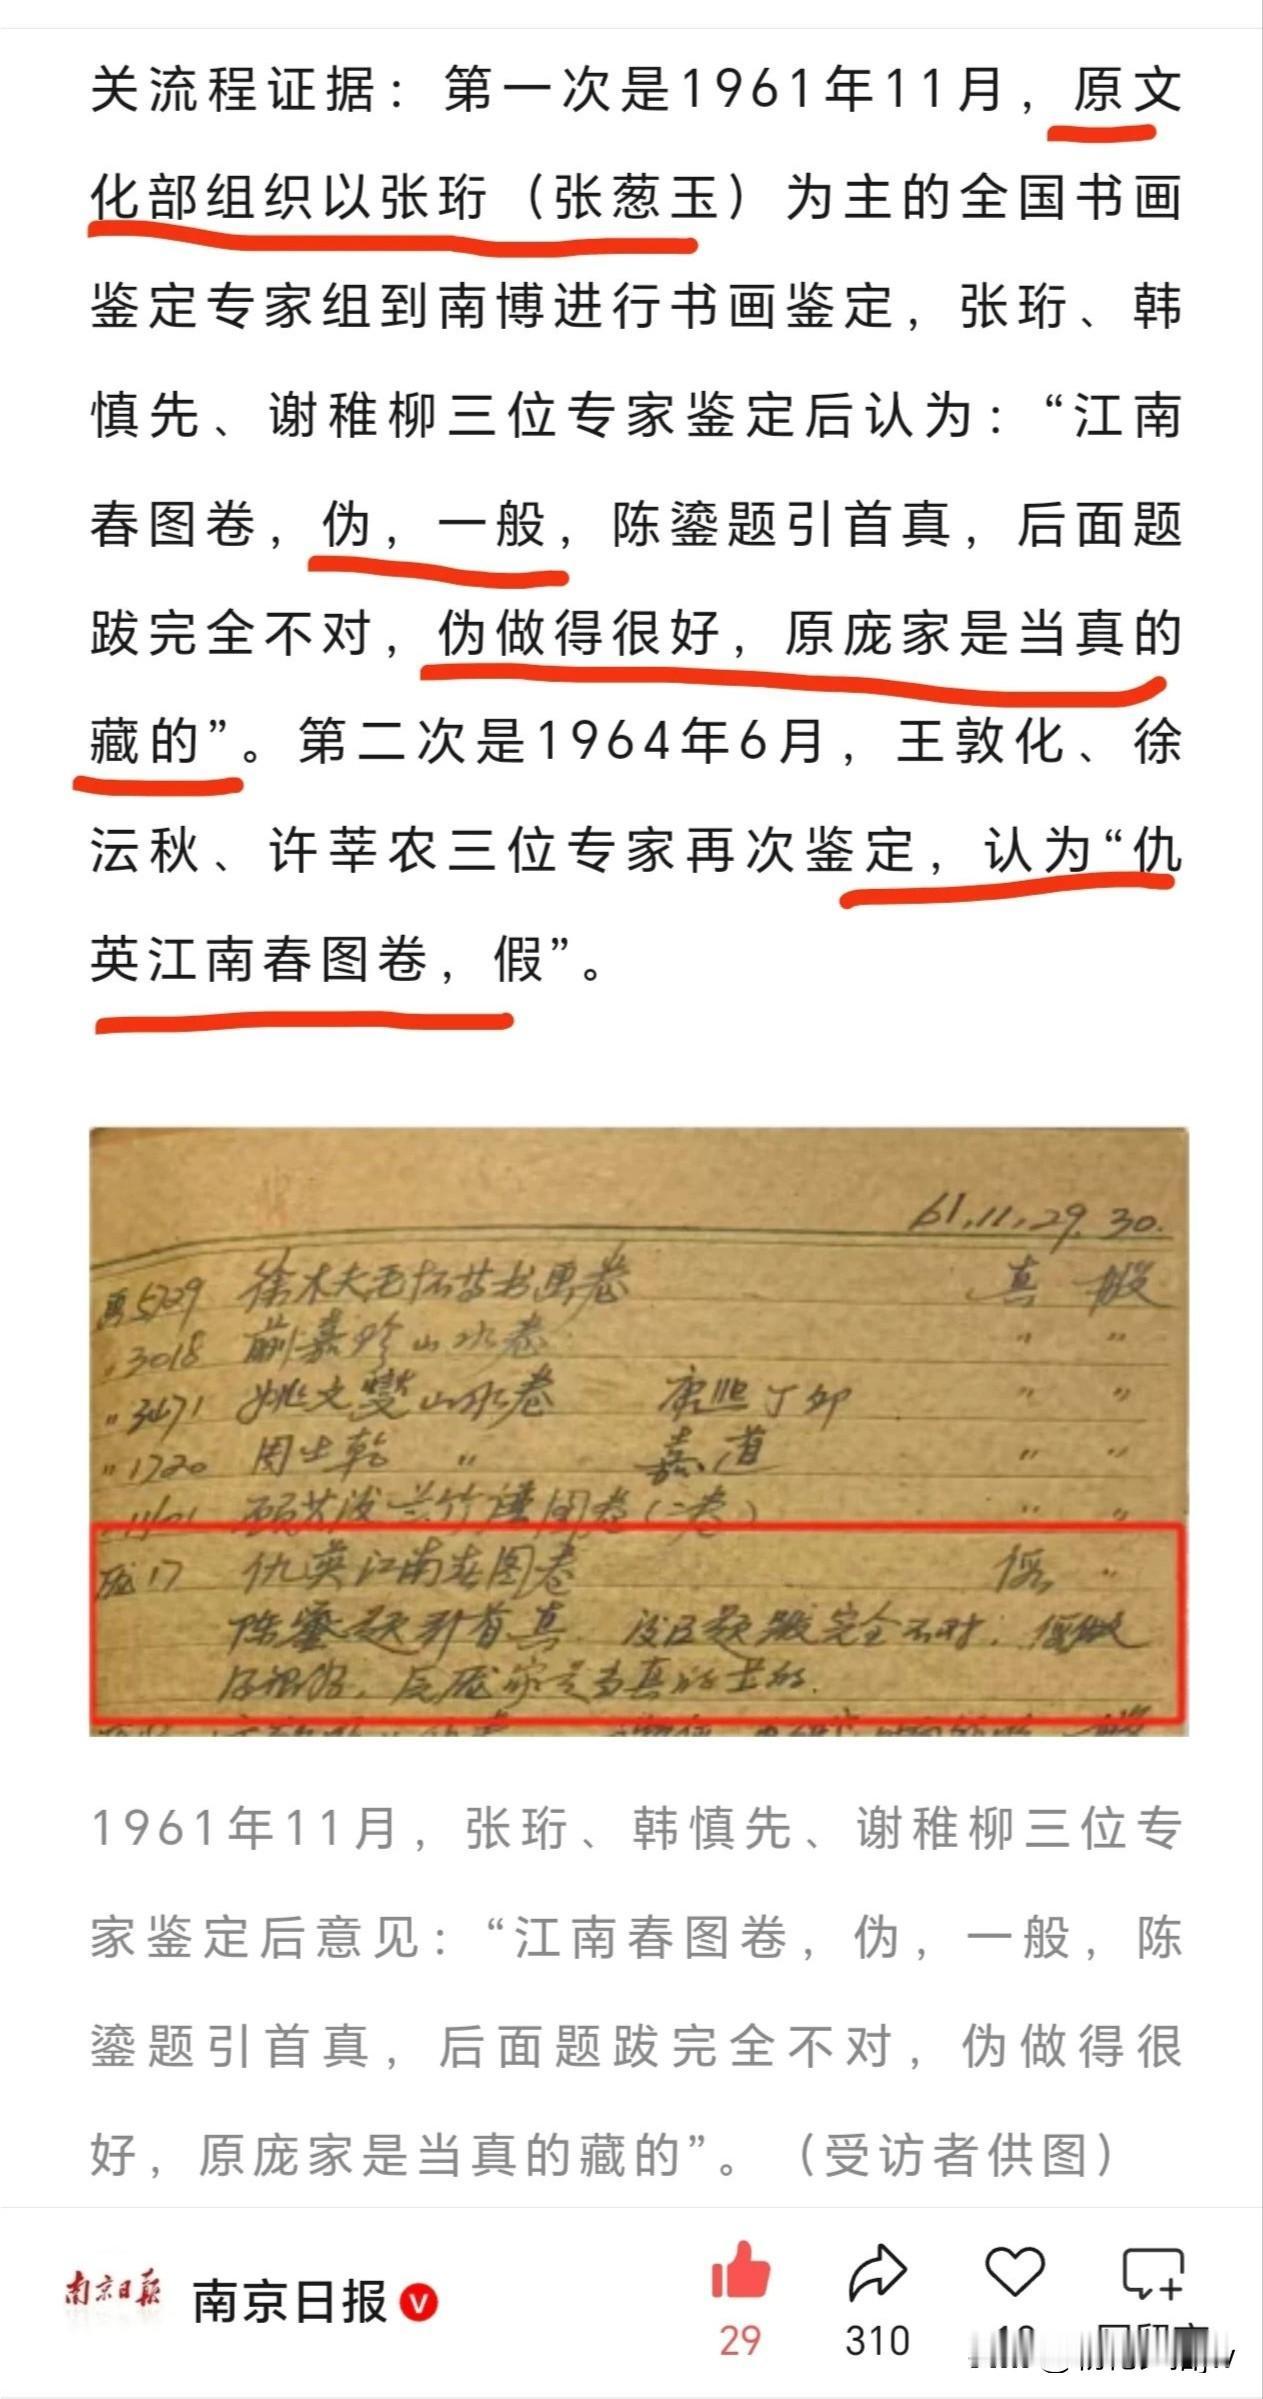 关流程证据：第一次是1961年11月，原文
化部组织以张珩（张葱玉）为主的全国书画
鉴定专家组到南博进行书画鉴定，张珩、韩
慎先、谢稚柳三位专家鉴定后认为：“江南
春图卷，伪，一般，陈鎏题引首真，后面题
跋完全不对，伪做得很好，原庞家是当真的
藏的”。第二次是1964年6月，王敦化、徐
沄秋、许莘农三位专家再次鉴定，认为“仇
英江南春图卷，假”。
61.11.29.30.
5729 徐木夫 书画卷 真 一般
3018 蒯嘉珍山水卷 〃 〃
〃3471 姚文燮山水卷 康熙丁卯 〃 〃
〃1720 周生乾 〃 嘉道 〃 〃
图卷(二卷) 〃 〃
庞17 仇英江南春图卷 伪 〃
陈鎏题引首真 后面题跋完全不对，伪做
得很好，原庞家是当真的藏的.
1961年11月，张珩、韩慎先、谢稚柳三位专
家鉴定后意见：“江南春图卷，伪，一般，陈
鎏题引首真，后面题跋完全不对，伪做得很
好，原庞家是当真的藏的”。（受访者供图）
南京日报 南京日报 V
29 310